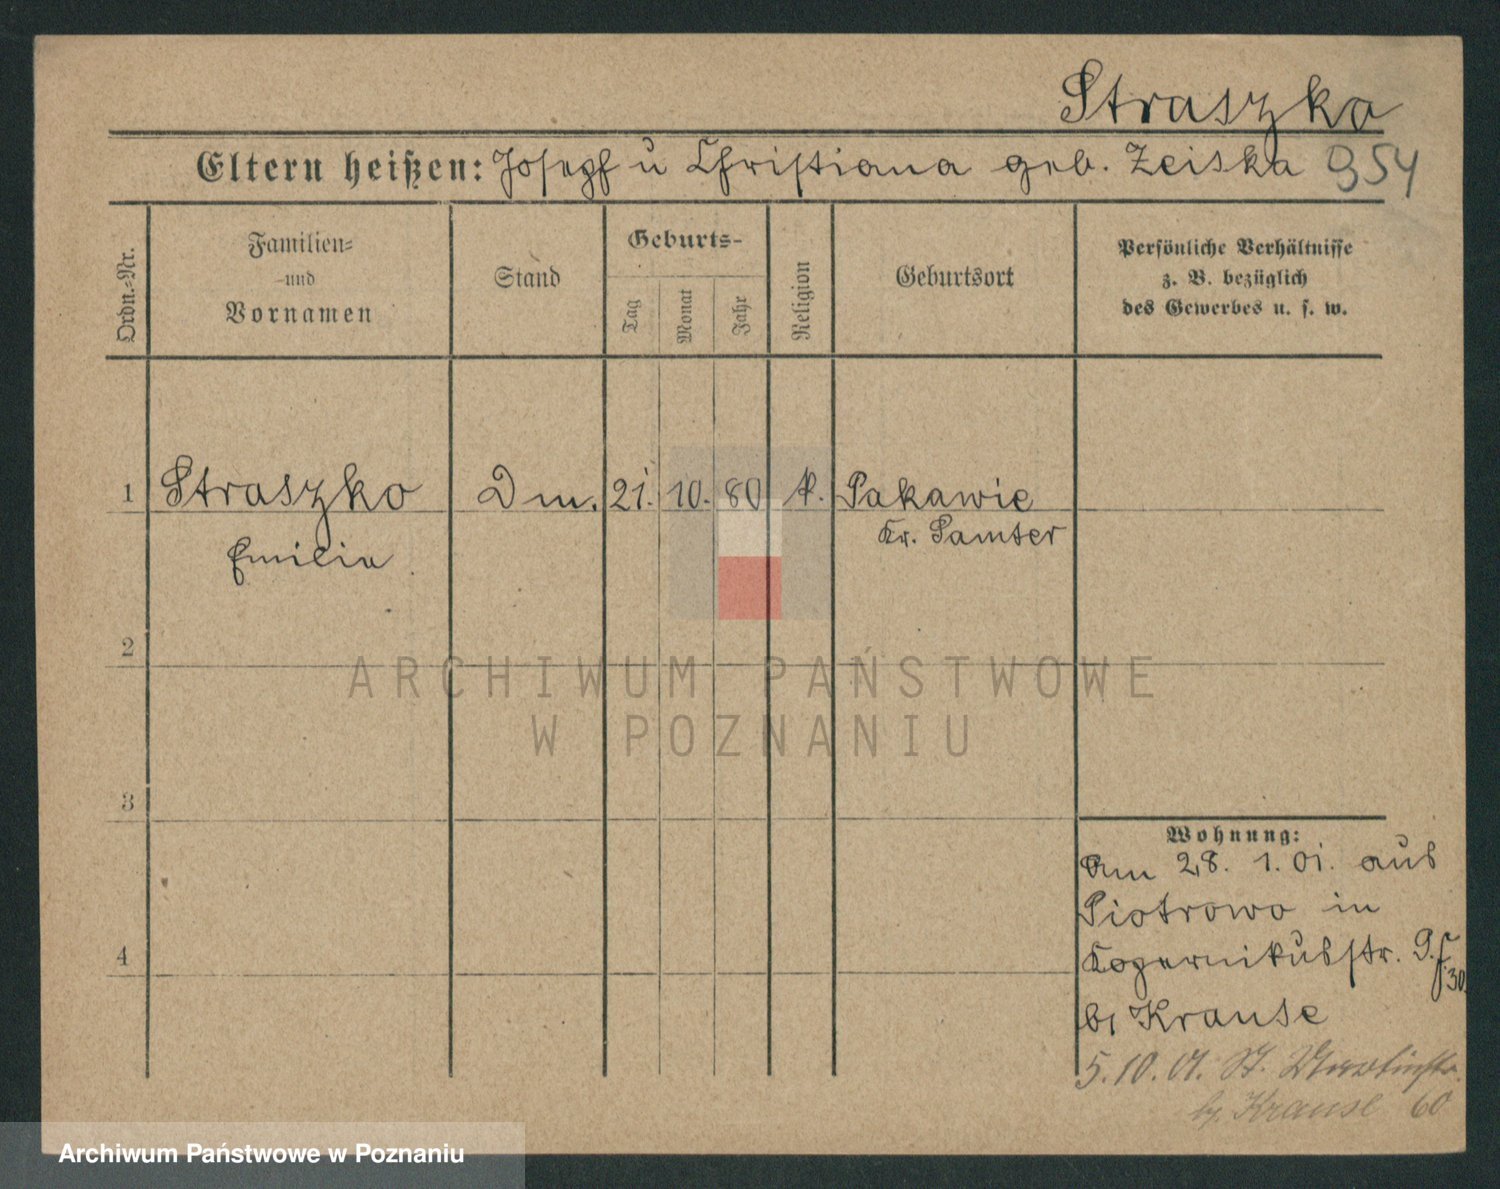 Straszko
Eltern heißen: Josepf u Christiana geb. Zeiska 954
Ordn.-Nr.
Familien-
und
Vornamen
Stand
Geburts-
Tag
Monat
Jahr
Religion
Geburtsort
Persönliche Verhältnisse
z. B. bezüglich
des Gewerbes u. s. w.
1 Straszko Dm. 21. 10. 80 k. Pakawie
Kr. Samter
Emilie
2
3
4
Wohnung:
Am 28. 1. 01. aus
Piotrowo in
Kopernikusstr. 9.
30.
b/ Krause
5.10.01. St.
b/ Krause 60
ARCHIWUM PAŃSTWOWE
W POZNANIU
Archiwum Państwowe w Poznaniu